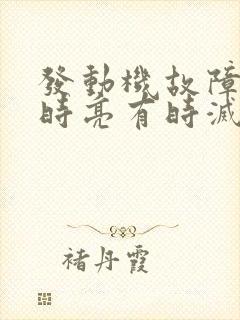 發動機故障
時亮有時滅
褚丹霞